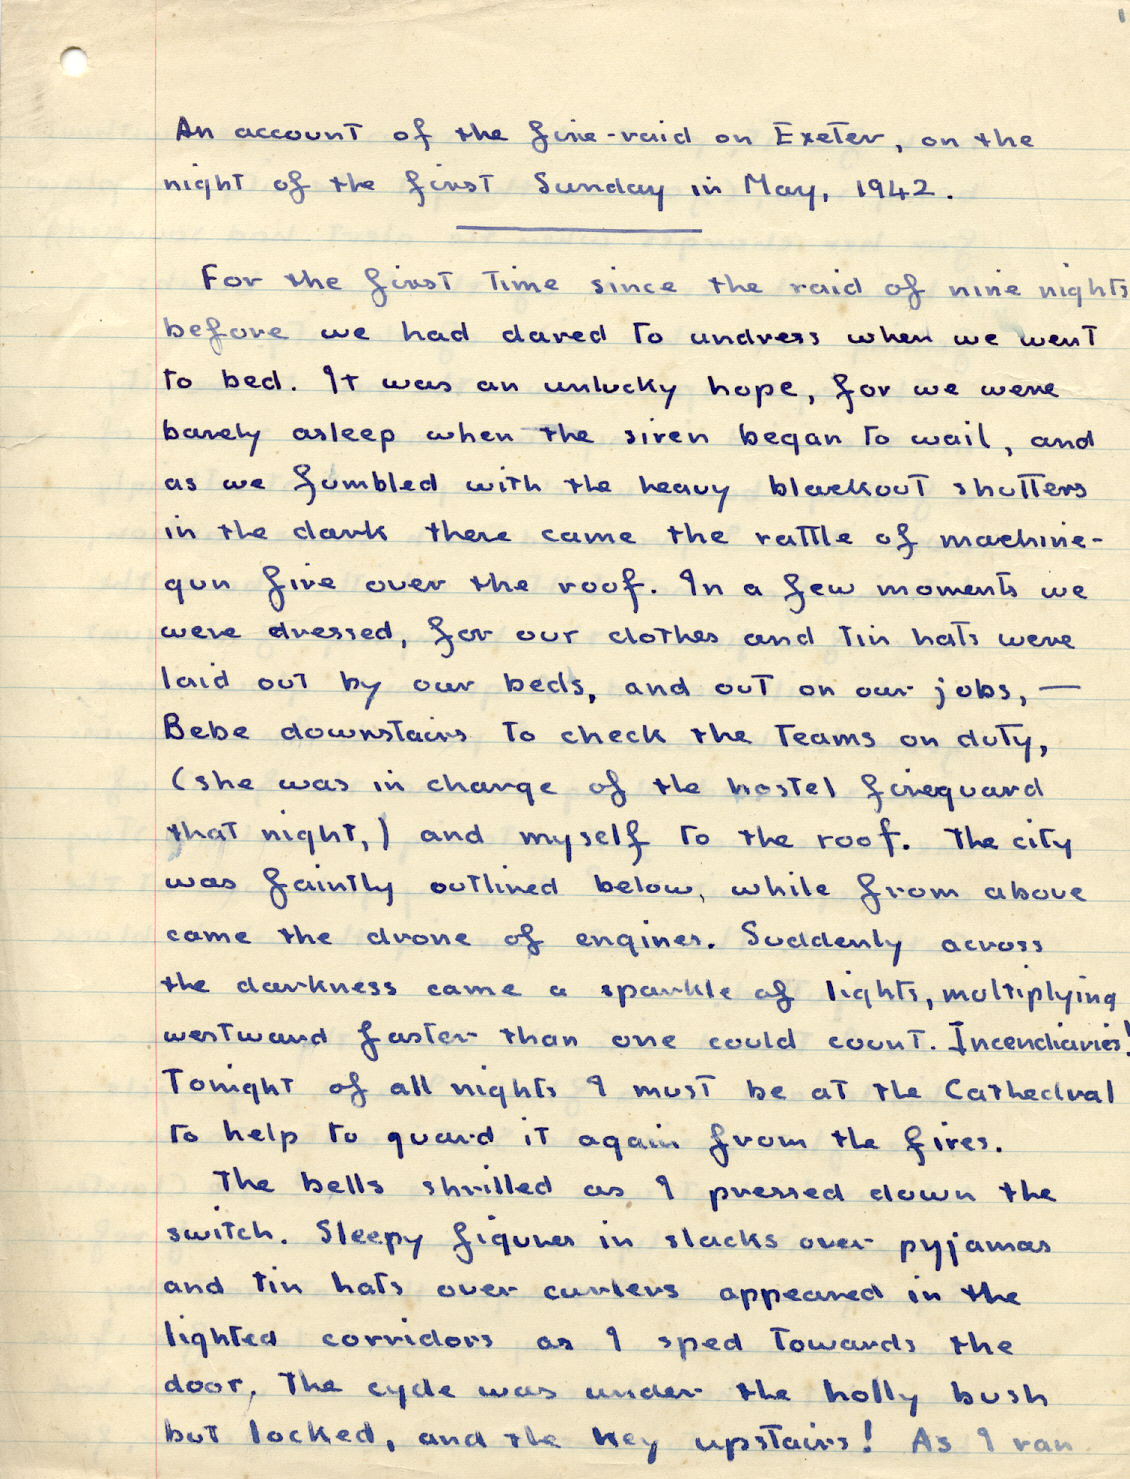 1
An account of the fire-raid on Exeter, on the
night of the first Sunday in May, 1942.
For the first time since the raid of nine nights
before we had dared to undress when we went
to bed. It was an unlucky hope, for we were
barely asleep when the siren began to wail, and
as we fumbled with the heavy blackout shutters
in the dark there came the rattle of machine-
gun fire over the roof. In a few moments we
were dressed, for our clothes and tin hats were
laid out by our beds, and out on our jobs, —
Bebe downstairs to check the teams on duty,
(she was in charge of the hostel fireguard
that night,) and myself to the roof. The city
was faintly outlined below, while from above
came the drone of engines. Suddenly across
the darkness came a sparkle of lights, multiplying
westward faster than one could count. Incendiaries!
Tonight of all nights I must be at the Cathedral
to help to guard it again from the fires.
The bells shrilled as I pressed down the
switch. Sleepy figures in slacks over pyjamas
and tin hats over curlers appeared in the
lighted corridors as I sped towards the
door. The cycle was under the holly bush
but locked, and the key upstairs! As I ran